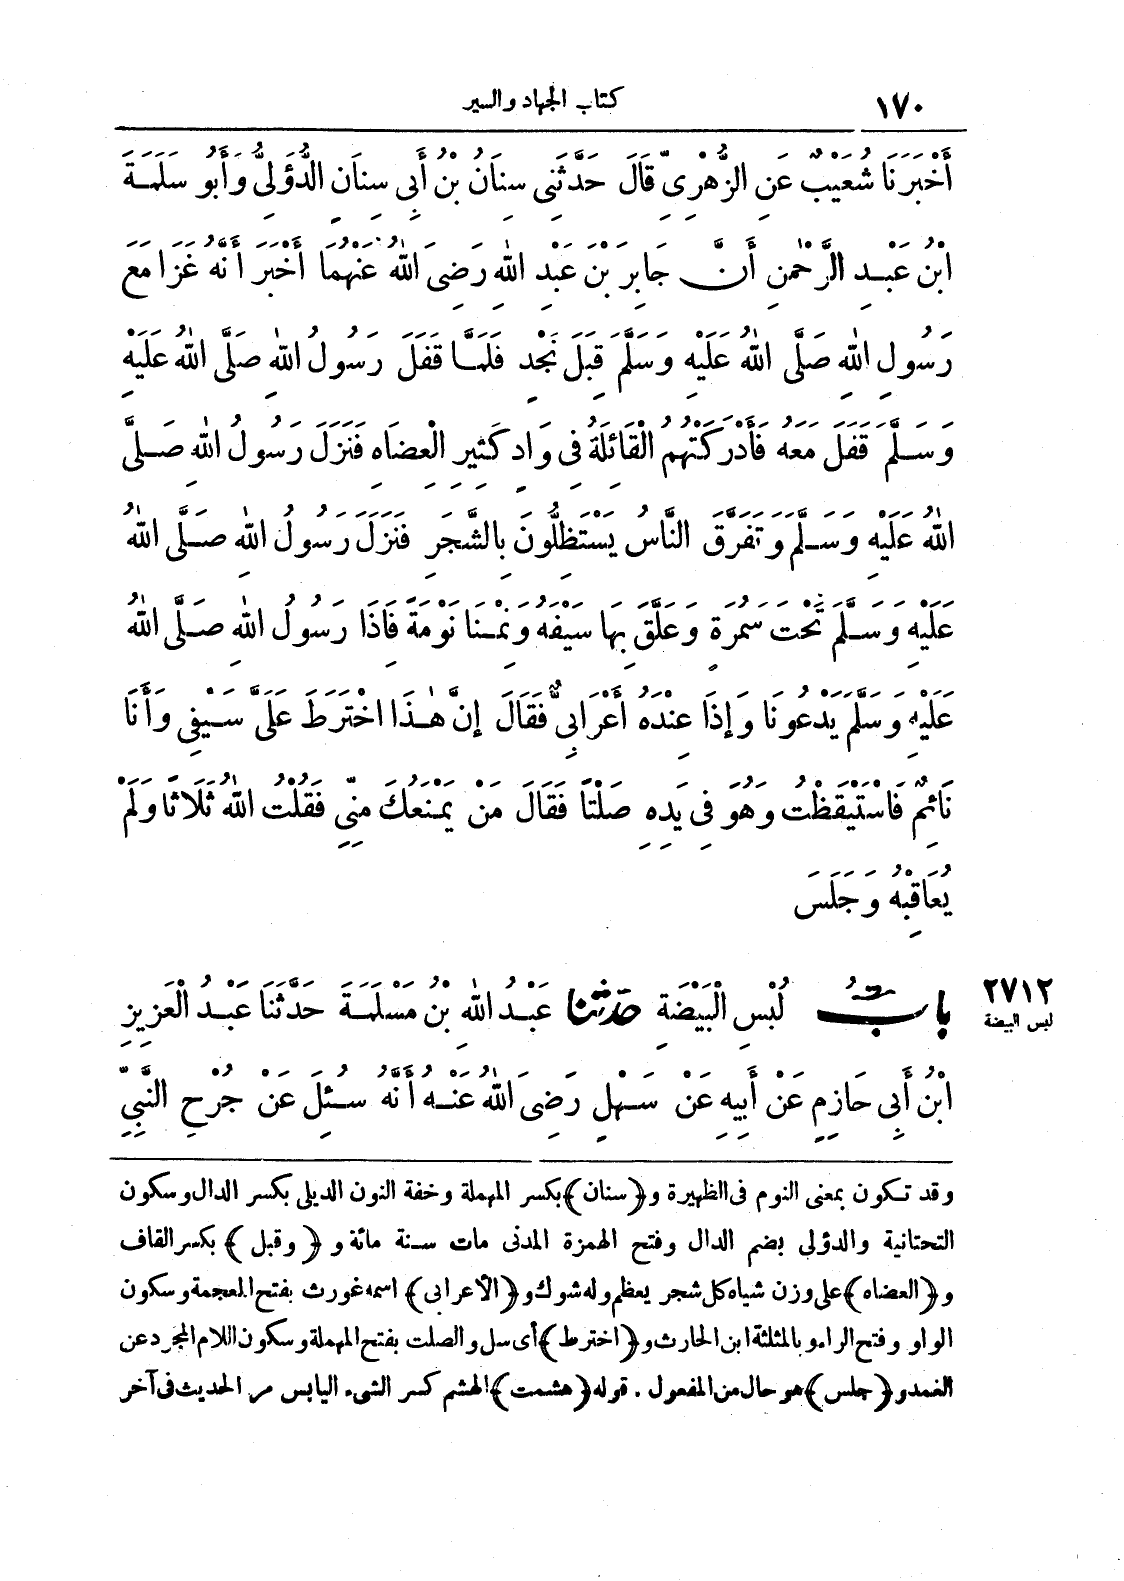 ١٧٠ كتاب الجهاد والسير
أَخْبَرَنَا شُعَيْبٌ عَنِ الزُّهْرِيِّ قَالَ حَدَّثَنِي سِنَانُ بْنُ أَبِي سِنَانٍ الدُّؤَلِيُّ وَأَبُو سَلَمَةَ
ابْنُ عَبْدِ الرَّحْمٰنِ أَنَّ جَابِرَ بْنَ عَبْدِ اللّٰهِ رَضِيَ اللّٰهُ عَنْهُمَا أَخْبَرَ أَنَّهُ غَزَا مَعَ
رَسُولِ اللّٰهِ صَلَّى اللّٰهُ عَلَيْهِ وَسَلَّمَ قِبَلَ نَجْدٍ فَلَمَّا قَفَلَ رَسُولُ اللّٰهِ صَلَّى اللّٰهُ عَلَيْهِ
وَسَلَّمَ قَفَلَ مَعَهُ فَأَدْرَكَتْهُمُ الْقَائِلَةُ فِي وَادٍ كَثِيرِ الْعِضَاهِ فَنَزَلَ رَسُولُ اللّٰهِ صَلَّى
اللّٰهُ عَلَيْهِ وَسَلَّمَ وَتَفَرَّقَ النَّاسُ يَسْتَظِلُّونَ بِالشَّجَرِ فَنَزَلَ رَسُولُ اللّٰهِ صَلَّى اللّٰهُ
عَلَيْهِ وَسَلَّمَ تَحْتَ سَمُرَةٍ وَعَلَّقَ بِهَا سَيْفَهُ وَنِمْنَا نَوْمَةً فَإِذَا رَسُولُ اللّٰهِ صَلَّى اللّٰهُ
عَلَيْهِ وَسَلَّمَ يَدْعُونَا وَإِذَا عِنْدَهُ أَعْرَابِيٌّ فَقَالَ إِنَّ هٰذَا اخْتَرَطَ عَلَيَّ سَيْفِي وَأَنَا
نَائِمٌ فَاسْتَيْقَظْتُ وَهُوَ فِي يَدِهِ صَلْتًا فَقَالَ مَنْ يَمْنَعُكَ مِنِّي فَقُلْتُ اللّٰهُ ثَلَاثًا وَلَمْ
يُعَاقِبْهُ وَجَلَسَ
٢٧١٢ لبس البيضة
بَابُ لُبْسِ الْبَيْضَةِ حَدَّثَنَا عَبْدُ اللّٰهِ بْنُ مَسْلَمَةَ حَدَّثَنَا عَبْدُ الْعَزِيزِ
ابْنُ أَبِي حَازِمٍ عَنْ أَبِيهِ عَنْ سَهْلٍ رَضِيَ اللّٰهُ عَنْهُ أَنَّهُ سُئِلَ عَنْ جُرْحِ النَّبِيِّ
وقد تكون بمعنى النوم فى الظهيرة و﴿سنان﴾ بكسر المهملة وخفة النون الديلى بكسر الدال وسكون
التحتانية والدؤلى بضم الدال وفتح الهمزة المدنى مات سنة مائة و ﴿وقبل﴾ بكسر القاف
و﴿العضاه﴾ على وزن شياه كل شجر يعظم وله شوك و﴿الأعرابى﴾ اسمه غورث بفتح المعجمة وسكون
الواو وفتح الراء وبالمثلثة ابن الحارث و﴿اخترط﴾ أى سل والصلت بفتح المهملة وسكون اللام المجرد عن
الغمد و﴿جلس﴾ هو حال من المفعول . قوله ﴿هشمت﴾ الهشم كسر الشىء اليابس مر الحديث فى آخر